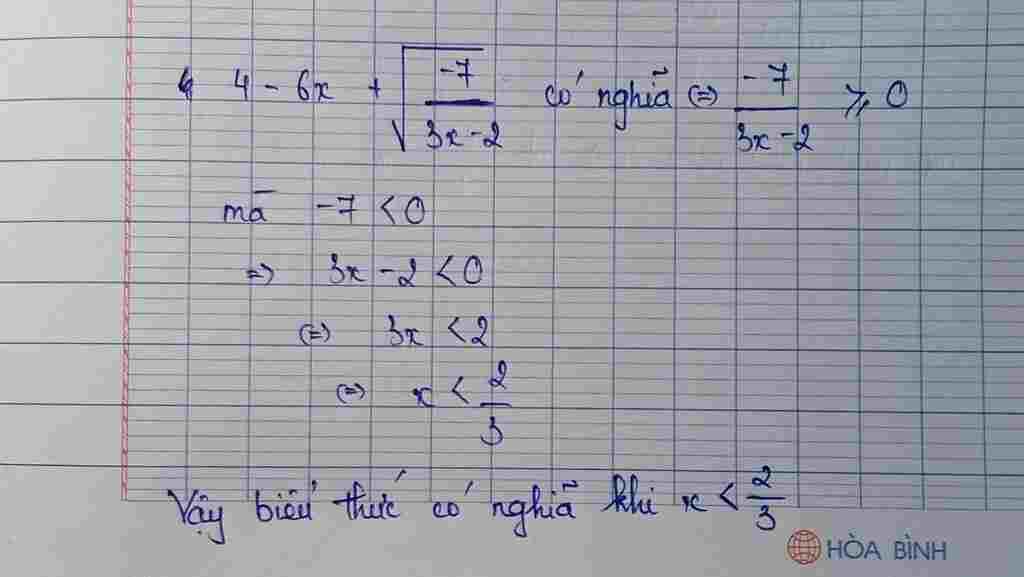 4 - 6x + √(-7/(3x-2)) có nghĩa (=) -7/(3x-2) ⩾ 0
mã -7 < 0
=) 3x - 2 < 0
(=) 3x < 2
(=) x < 2/3
Vậy biểu thức có nghĩa khi x < 2/3
HÒA BÌNH